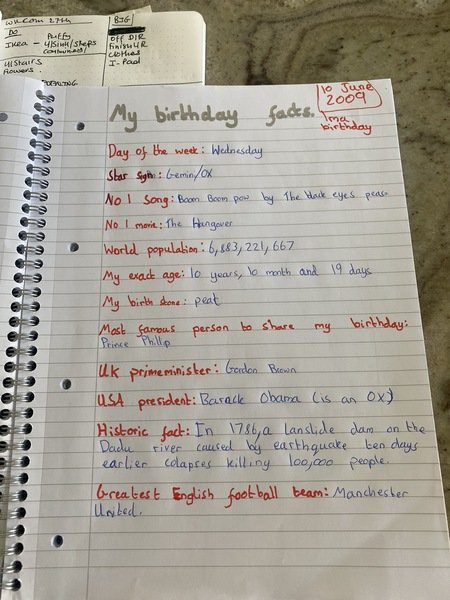 WK Com 27th
BIG
DO
Puffy
Off DIR
Ikea - 4/Sink/Steps
Finish UR
Clothes
4/Stairs
I-Pad
Flowers.
10 June
2009
My birthday facts.
Ima
birthday
Day of the week: Wednesday
Star sign: Gemin/OX
No 1 Song: Boom Boom pow by The black eyes peas
No 1 movie: The Hangover
World population: 6,883,221,667
My exact age: 10 years, 10 month and 19 days
My birth stone: peat
Most famous person to share my birthday:
Prince Phillip
UK primeminister: Gordon Brown
USA president: Barack Obama (is an Ox)
Historic fact: In 1786, a lanslide dam on the
Dadu river caused by earthquake ten days
earlier colapses killing 100,000 people.
Greatest English football team: Manchester
United.